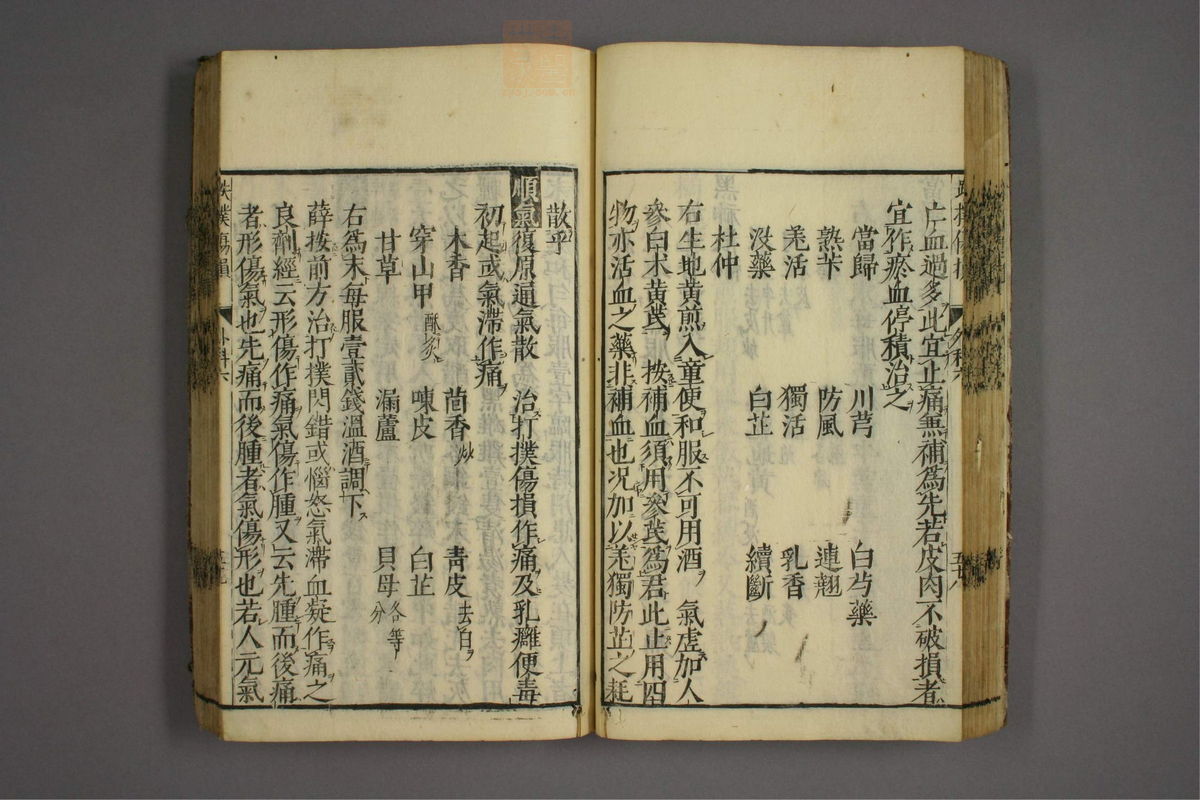 亡血過多此宜止痛兼補爲先若皮肉不破損者
宜作瘀血停積治之
當歸 川芎 白芍藥
熟苄 防風 連翹
羌活 獨活 乳香
沒藥 白芷 續斷
杜仲
右生地黄煎入童便和服不可用酒 氣虚加人
參白朮黄芪 按補血須用參芪爲君此止用四
物亦活血之藥非補血也况加以羌獨防芷之耗
散乎
順氣復原通氣散 治打撲傷損作痛及乳癰便毒
初起或氣滯作痛
木香 茴香炒 靑皮去白
穿山甲酥炙 陳皮 白芷
甘草 漏蘆 貝母各等分
右爲末每服壹貳錢溫酒調下
薛按前方治打撲閃錯或惱怒氣滯血凝作痛之
良劑經云形傷作痛氣傷作腫又云先腫而後痛
者形傷氣也先痛而後腫者氣傷形也若人元氣
跌撲傷損 外科六